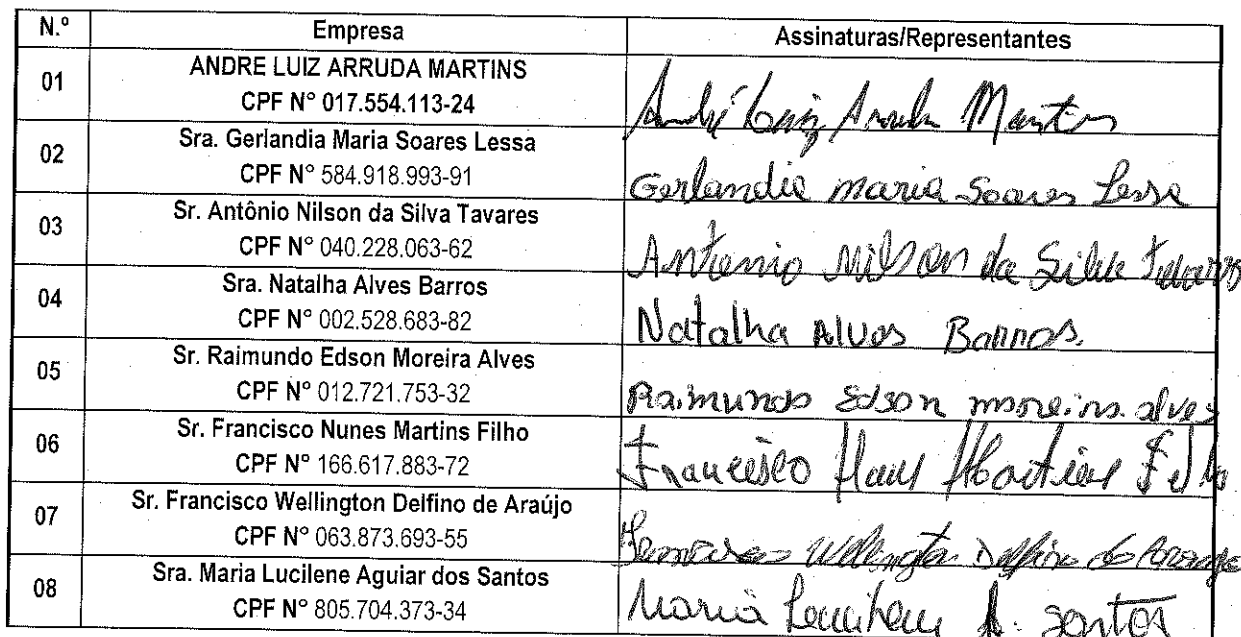 N.º Empresa Assinaturas/Representantes
01 ANDRE LUIZ ARRUDA MARTINS
CPF N° 017.554.113-24
André Luiz Arruda Martins
02 Sra. Gerlandia Maria Soares Lessa
CPF N° 584.918.993-91
Gerlandia maria Soares Lessa
03 Sr. Antônio Nilson da Silva Tavares
CPF N° 040.228.063-62
Antonio Nilson da Silva Tavares
04 Sra. Natalha Alves Barros
CPF N° 002.528.683-82
Natalha Alves Barros.
05 Sr. Raimundo Edson Moreira Alves
CPF N° 012.721.753-32
Raimundo Edson moreira alves
06 Sr. Francisco Nunes Martins Filho
CPF N° 166.617.883-72
Francisco Martins Filho
07 Sr. Francisco Wellington Delfino de Araújo
CPF N° 063.873.693-55
Wellington Delfino de
08 Sra. Maria Lucilene Aguiar dos Santos
CPF N° 805.704.373-34
Maria A. Santos